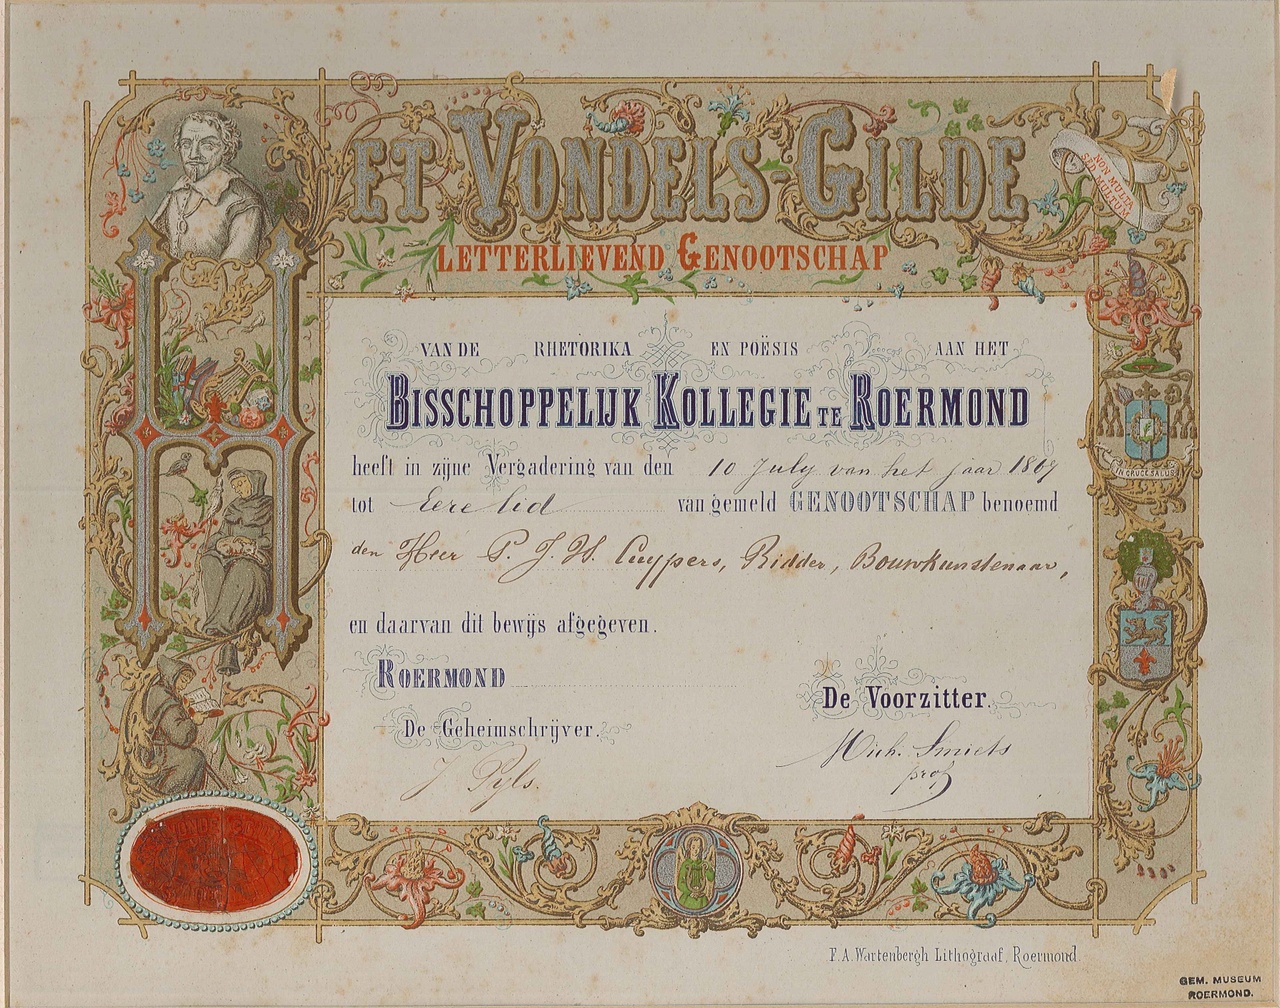 HET VONDELS-GILDE
NON MULTA
SED MULTUM
LETTERLIEVEND GENOOTSCHAP
VAN DE RHETORIKA EN POËSIS AAN HET
BISSCHOPPELIJK KOLLEGIE TE ROERMOND
heeft in zijne Vergadering van den 10 July van het jaar 1869
tot Eere lid van gemeld GENOOTSCHAP benoemd
den Heer P. J. H. Cuypers, Ridder, Bouwkunstenaar,
en daarvan dit bewijs afgegeven.
ROERMOND
De Voorzitter.
De Geheimschrijver.
Mich. Smiets
prof
J Pyls.
IN CRUCE SALUS
F. A. Wartenbergh Lithograaf, Roermond.
GEM. MUSEUM
ROERMOND.